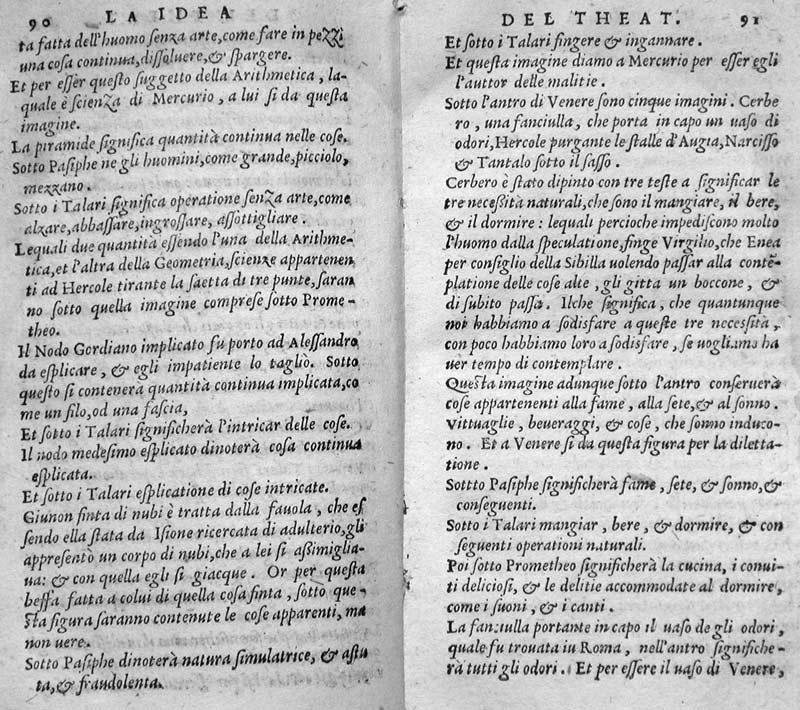 90 LA IDEA
ta fatta dell'huomo senza arte, come fare in pezzi
una cosa continua, dissoluere, & spargere.
Et per esser questo suggetto della Arithmetica, la-
quale è scienza di Mercurio, a lui si da questa
imagine.
La piramide significa quantità continua nelle cose.
Sotto Pasiphe ne gli huomini, come grande, picciolo,
mezzano.
Sotto i Talari significa operatione senza arte, come
alzare, abbassare, ingrossare, assottigliare.
Lequali due quantità essendo l'una della Arithme-
tica, et l'altra della Geometria, scienze appartenen
ti ad Hercole tirante la saetta di tre punte, saran
no sotto quella imagine comprese sotto Prome-
theo.
Il Nodo Gordiano implicato fu porto ad Alessandro
da esplicare, & egli impatiente lo tagliò. Sotto
questo si contenerà quantità continua implicata, co
me un filo, od una fascia,
Et sotto i Talari significherà l'intricar delle cose.
Il nodo medesimo esplicato dinoterà cosa continua
esplicata.
Et sotto i Talari esplicatione di cose intricate.
Giunon finta di nubi è tratta dalla fauola, che es
sendo ella stata da Isione ricercata di adulterio, gli
appresentò un corpo di nubi, che a lei si assimiglia-
ua: & con quella egli si giacque. Or per questa
beffa fatta a colui di quella cosa finta, sotto que-
sta figura saranno contenute le cose apparenti, ma
non uere.
Sotto Pasiphe dinoterà natura simulatrice, & astu
ta, & fraudolenta.
DEL THEAT. 91
Et sotto i Talari fingere & ingannare.
Et questa imagine diamo a Mercurio per esser egli
l'auttor delle malitie.
Sotto l'antro di Venere sono cinque imagini. Cerbe
ro, una fanciulla, che porta in capo un uaso di
odori, Hercole purgante le stalle d'Augia, Narcisso
& Tantalo sotto il sasso.
Cerbero è stato dipinto con tre teste a significar le
tre necessità naturali, che sono il mangiare, il bere,
& il dormire: lequali percioche impediscono molto
l'huomo dalla speculatione, finge Virgilio, che Enea
per consiglio della Sibilla uolendo passar alla contẽ-
platione delle cose alte, gli gitta un boccone, &
di subito passa. Ilche significa, che quantunque
noi habbiamo a sodisfare a queste tre necessità,
con poco habbiamo loro a sodisfare, se uogliamo ha
uer tempo di contemplare.
Questa imagine adunque sotto l'antro conseruerà
cose appartenenti alla fame, alla sete, & al sonno.
Vittuaglie, beueraggi, & cose, che sonno induco-
no. Et a Venere si da questa figura per la diletta-
tione.
Sottto Pasiphe significherà fame, sete, & sonno, &
conseguenti.
Sotto i Talari mangiar, bere, & dormire, & con
seguenti operationi naturali.
Poi sotto Prometheo significherà la cucina, i conui-
ti deliciosi, & le delitie accommodate al dormire,
come i suoni, & i canti.
La fanciulla portante in capo il uaso de gli odori,
quale fu trouata in Roma, nell'antro significhe-
rà tutti gli odori. Et per essere il uaso di Venere,